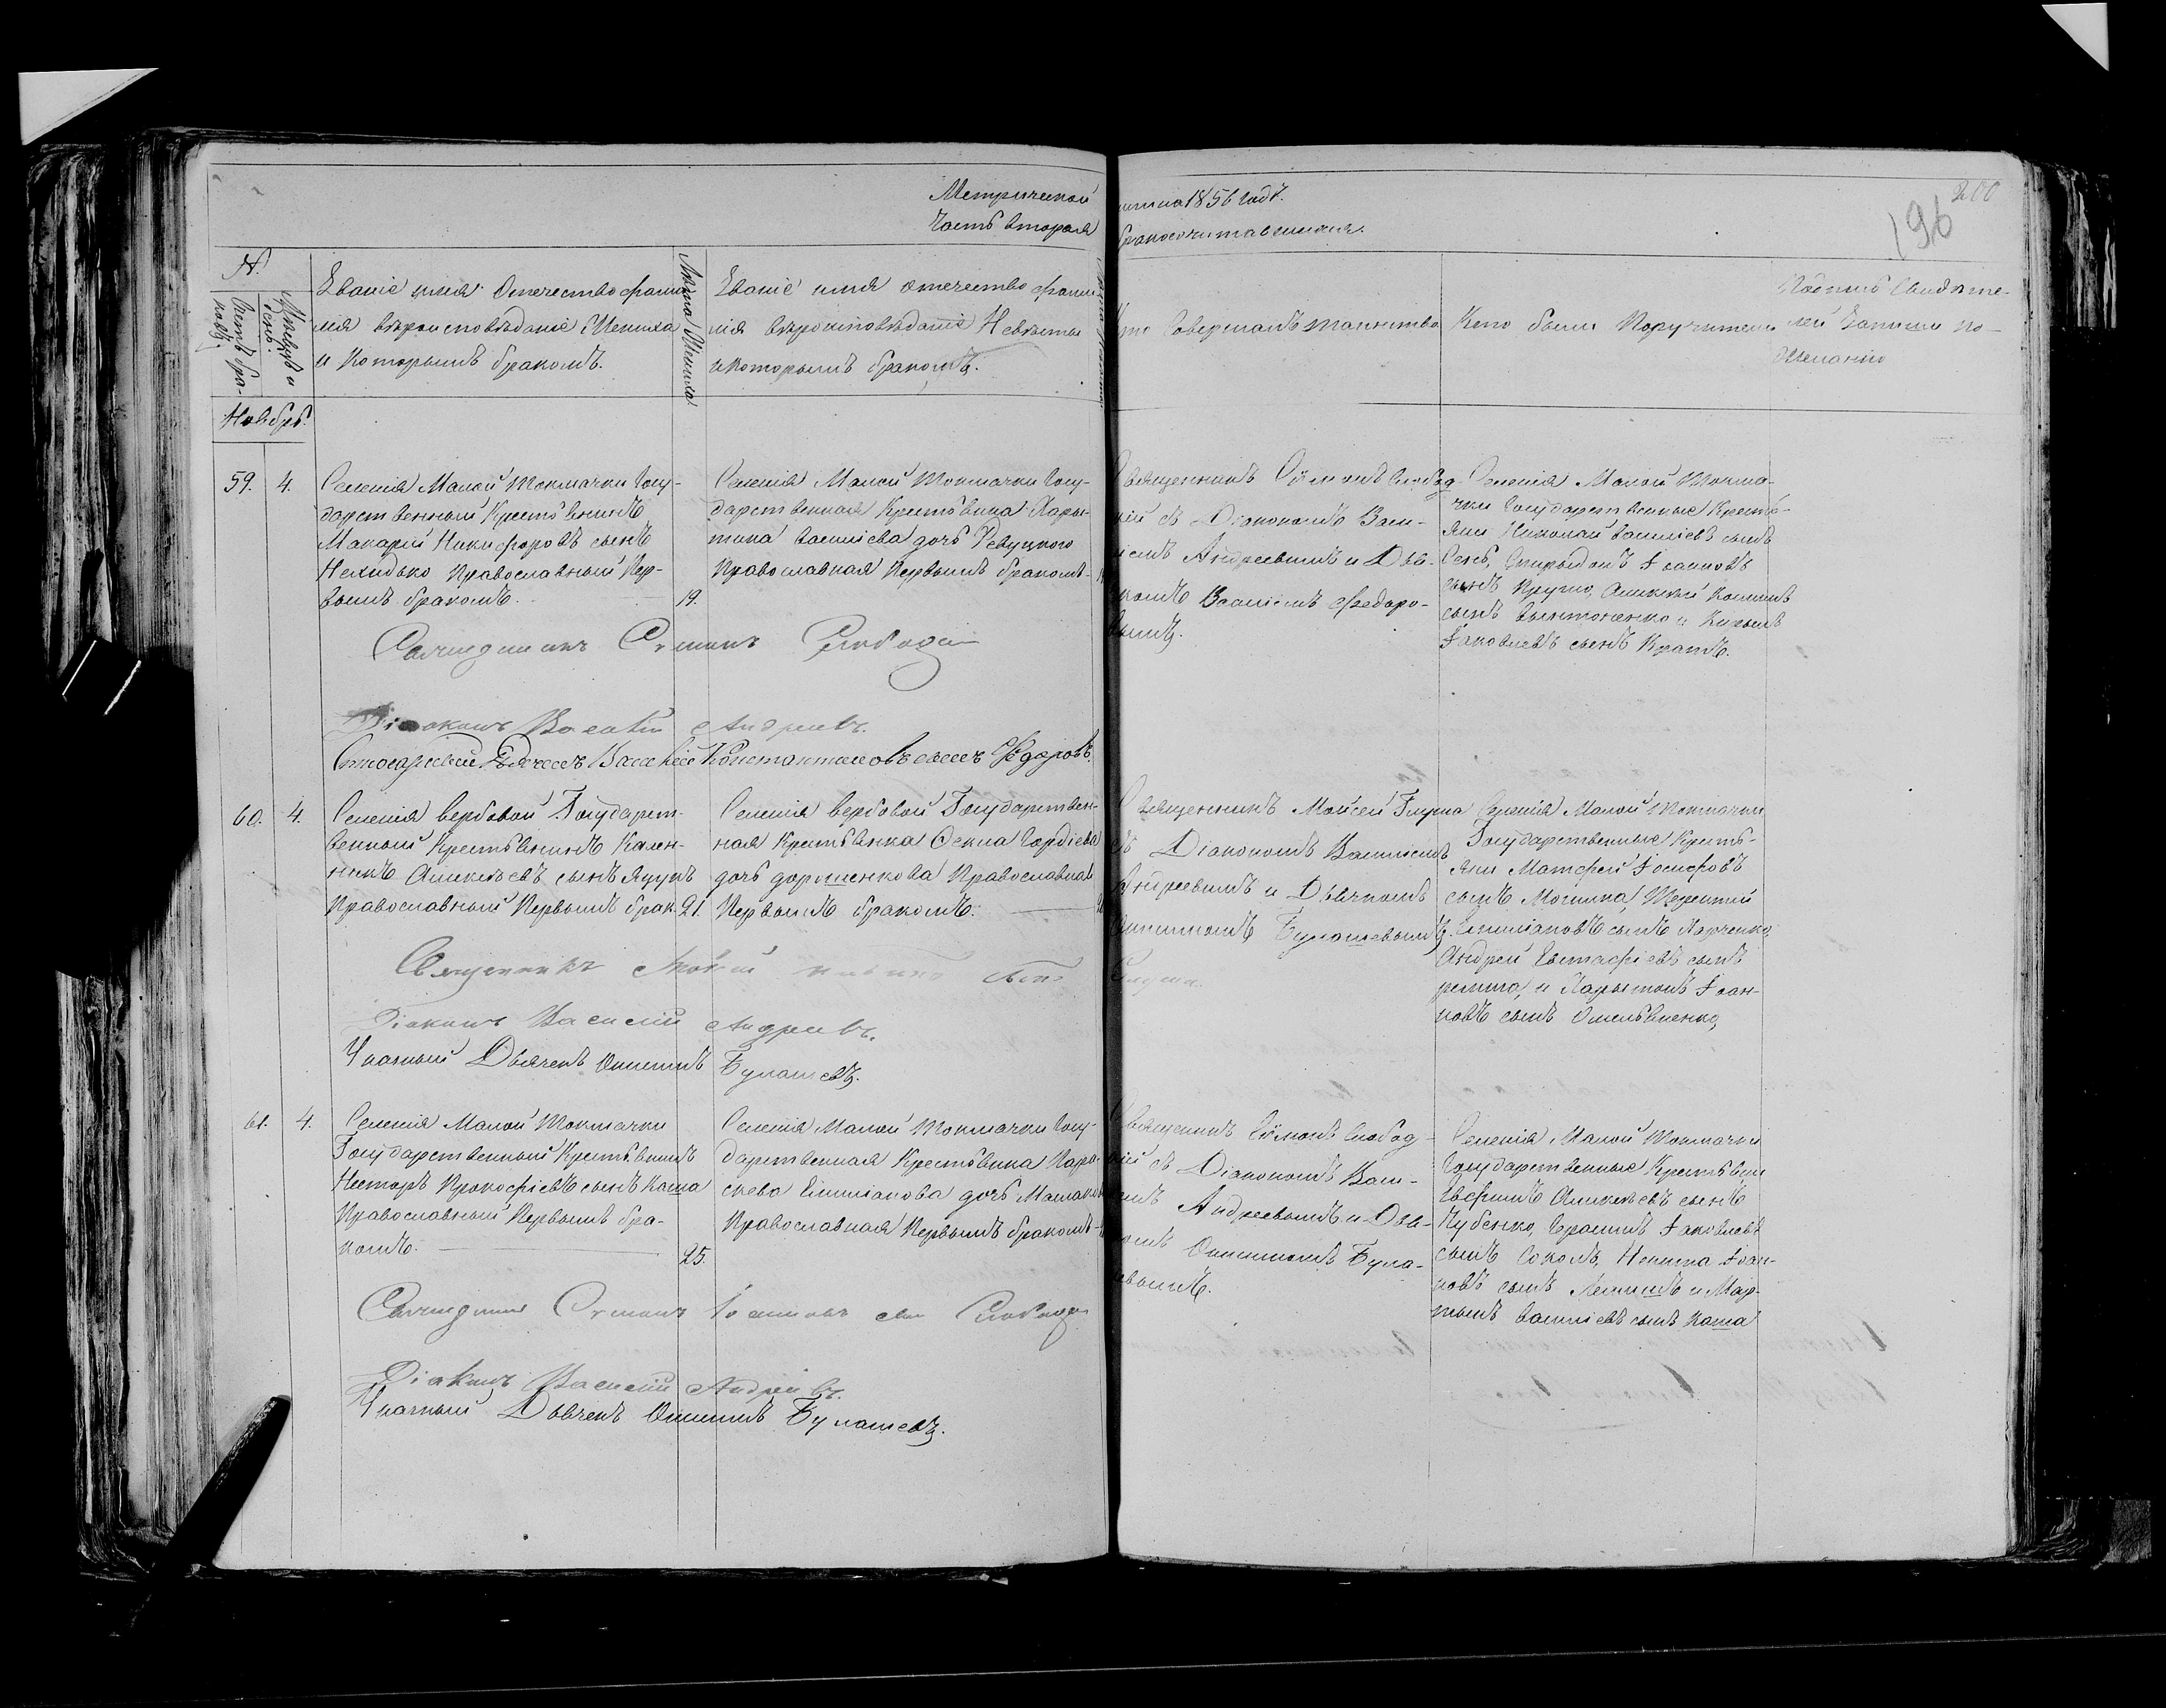 Метрической
Часть вторая
книги 1856 года.
бракосочитавшихся.
196
200
№
Счетъ бра-
ковъ.
Мѣсяцъ и
день.
Званіе имя Отечество фами-
лія вѣроисповѣданіе Жениха
и Которымъ бракомъ.
Лѣта Жениха
Званіе имя отечество фами-
лія вѣроисповѣданіе Невѣсты
и которымъ бракомъ.
Кто Совершалъ таинство
Кто были Поручители
Подпись Свидѣте-
лей Записи по-
Желанію
Ноябрь.
59. 4.
Селенія Малой Токмачки Госу-
дарственный Крестьянинъ
Макарій Никифоровъ сынъ
Нехидько Православный Пер-
вымъ бракомъ. 19.
Селенія Малой Токмачки Госу-
дарственная Крестьянка Хары-
тина Василіева дочь Ревуцкого
Православная Первымъ бракомъ-
Священникъ Сѵмонъ Слобод-
кій съ Діакономъ Васи-
ліемъ Андреевымъ и Дья-
комъ Василіемъ Федоро-
вымъ.
Селенія Малой Токма-
чки Государственные Кресть-
яни Николай Василіевъ сынъ
Сень, Спиридонъ Іоанновъ
сынъ Кругло, Алексей
сынъ и Кирылъ
Іаковлевъ сынъ Кратъ.
Священникъ Сѵмонъ Слободской
Діаконъ Василій Андреевъ.
Василій Константиновъ сынъ Федоровъ.
60. 4.
Селенія Вербовой Государст-
венный Крестьянинъ Кален-
никъ Алексѣевъ сынъ Яцукъ
Православный Первымъ брак. 21.
Селенія Вербовой Государствен-
ная Крестьянка Фекла Гордіева
дочь Дорошенкова Православная
Первымъ бракомъ.
Священникъ Мойсей Глуша
съ Діакономъ Василіемъ
Андреевымъ и Дьячкомъ
Онисимомъ Булашевымъ.
Селенія Малой Токмачки
Государственные Кресть-
яни Матфей Іосифовъ
сынъ Могилка, Терентій
Емиліановъ сынъ Харченко,
Андрей Евстафіевъ сынъ
и Харытонъ Іоан-
новъ сынъ Омельяненко,
Священникъ Мойсей
Діаконъ Василій Андреевъ.
Указный Дьячекъ Онисимъ Булашевъ.
61. 4.
Селенія Малой Токмачки
Государственный Крестьянинъ
Несторъ Прокофіевъ сынъ Каша
Православный Первымъ бра-
комъ. 25.
Селенія Малой Токмачки Госу-
дарственная Крестьянка Пара-
скева Емиліанова дочь
Православная Первымъ бракомъ-
Священникъ Сѵмонъ Слобод-
кій съ Діакономъ Васи-
ліемъ Андреевымъ и Дья-
комъ Онисимомъ Була-
шевымъ.
Селенія Малой Токмачки
Государственные Крестьяни
Евфимъ Алексѣевъ сынъ
Чубенко, Герасимъ Іаковлевъ
сынъ Соколъ, Никита Іоан-
новъ сынъ и Мар-
тынъ Василіевъ сынъ Каша
Священникъ Сѵмонъ Іоанновъ сынъ Слободской
Діаконъ Василій Андреевъ.
Указный Дьячекъ Онисимъ Булашевъ.